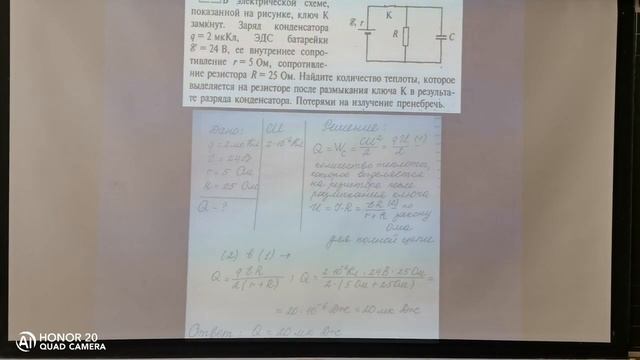 В электрической схеме,
показанной на рисунке, ключ К
замкнут. Заряд конденсатора
q = 2 мкКл, ЭДС батарейки
ℰ = 24 В, ее внутреннее сопро-
тивление r = 5 Ом, сопротивле-
ние резистора R = 25 Ом. Найдите количество теплоты, которое
выделяется на резисторе после размыкания ключа К в результа-
те разряда конденсатора. Потерями на излучение пренебречь.
ℰ, r
K
R
C
Дано:
q = 2 мкКл
ℰ = 24 В
r = 5 Ом
R = 25 Ом
Q - ?
СИ
2·10⁻⁶ Кл
Решение:
Q = W_C = CU²/2 = qU/2 (1)
количество теплоты,
которое выделяется
на резисторе после
размыкания ключа
U = J·R = ℰR/(r+R) (2) по
закону
Ома
для полной цепи
(2) в (1) →
Q = qℰR/2(r+R) ; Q = 2·10⁻⁶Кл·24В·25Ом/2·(5Ом+25Ом) =
= 20·10⁻⁶ Дж = 20 мк Дж
Ответ: Q = 20 мк Дж
HONOR 20
AI QUAD CAMERA